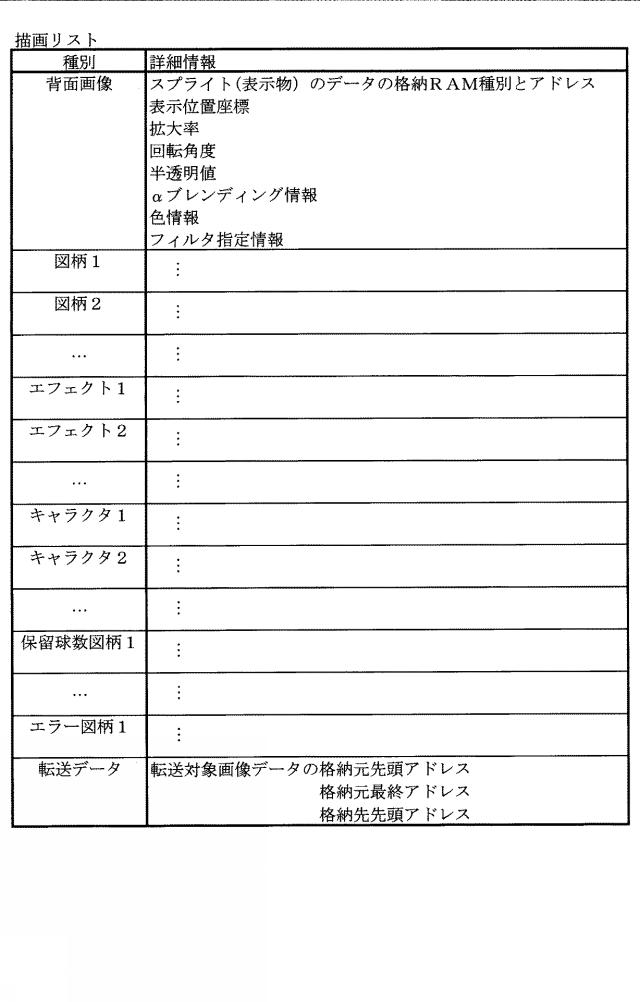 描画リスト
種別 詳細情報
背面画像 スプライト(表示物)のデータの格納RAM種別とアドレス
表示位置座標
拡大率
回転角度
半透明値
αブレンディング情報
色情報
フィルタ指定情報
図柄1 ⋮
図柄2 ⋮
… ⋮
エフェクト1 ⋮
エフェクト2 ⋮
… ⋮
キャラクタ1 ⋮
キャラクタ2 ⋮
… ⋮
保留球数図柄1 ⋮
… ⋮
エラー図柄1 ⋮
転送データ 転送対象画像データの格納元先頭アドレス
格納元最終アドレス
格納先先頭アドレス